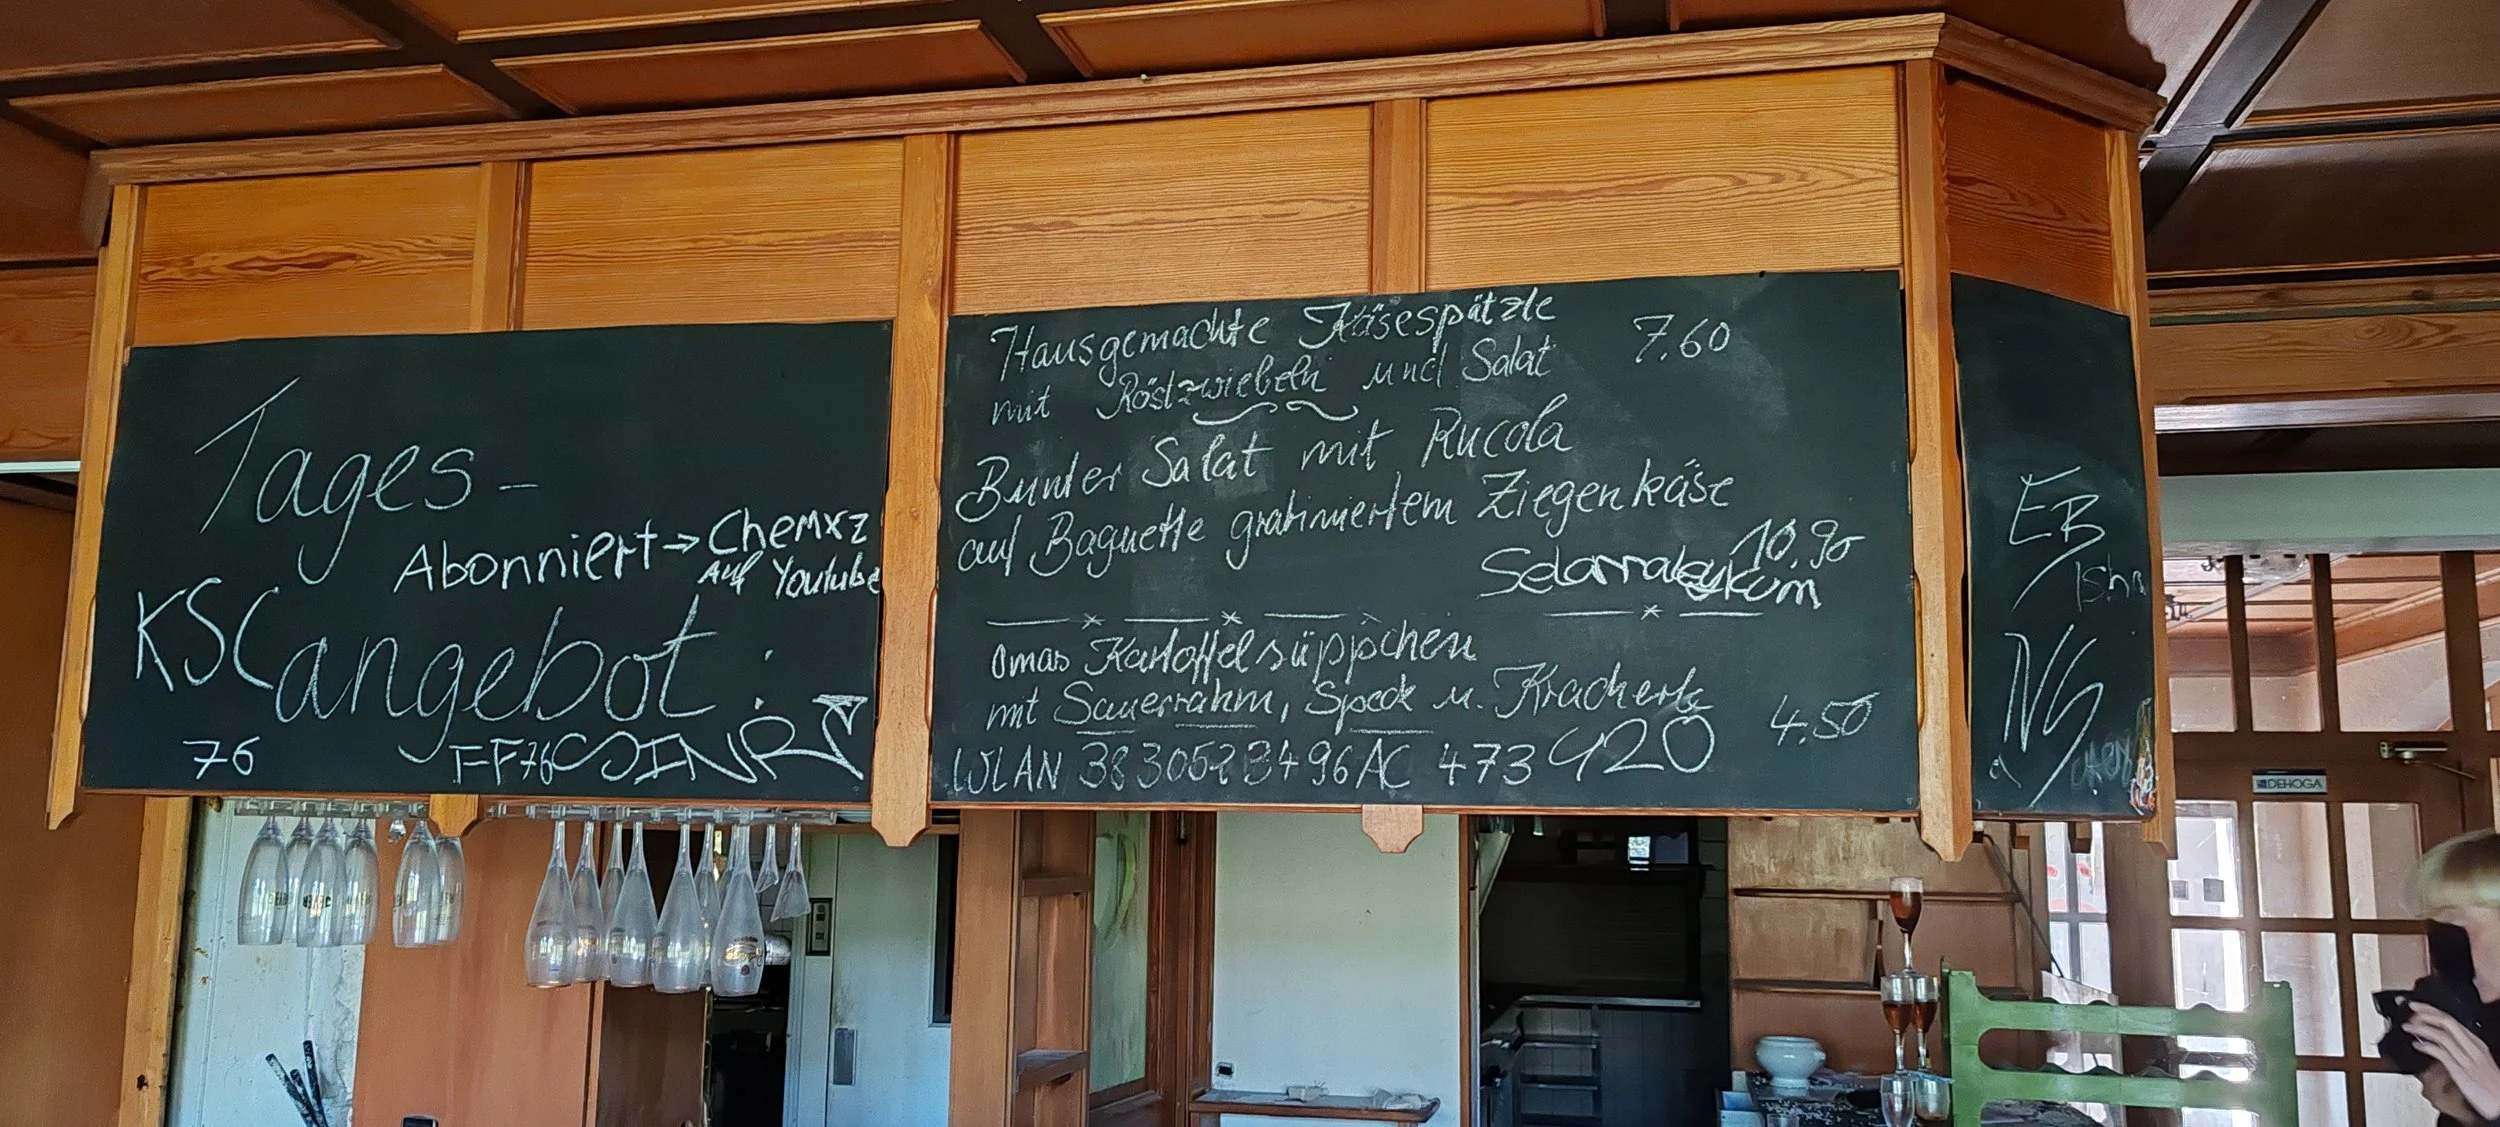 Tages-
Abonniert → Chemxz
Auf Youtube
KSC
angebot:
76
FF76
Hausgemachte Käsespätzle
mit Röstzwiebeln und Salat 7.60
Bunter Salat mit Rucola
auf Baguette gratiniertem Ziegenkäse
10.90
Selamaleykum
Omas Kartoffelsüppchen
mit Sauerrahm, Speck u. Kracherle 4.50
WLAN 473 420
EB
NG
DEHOGA